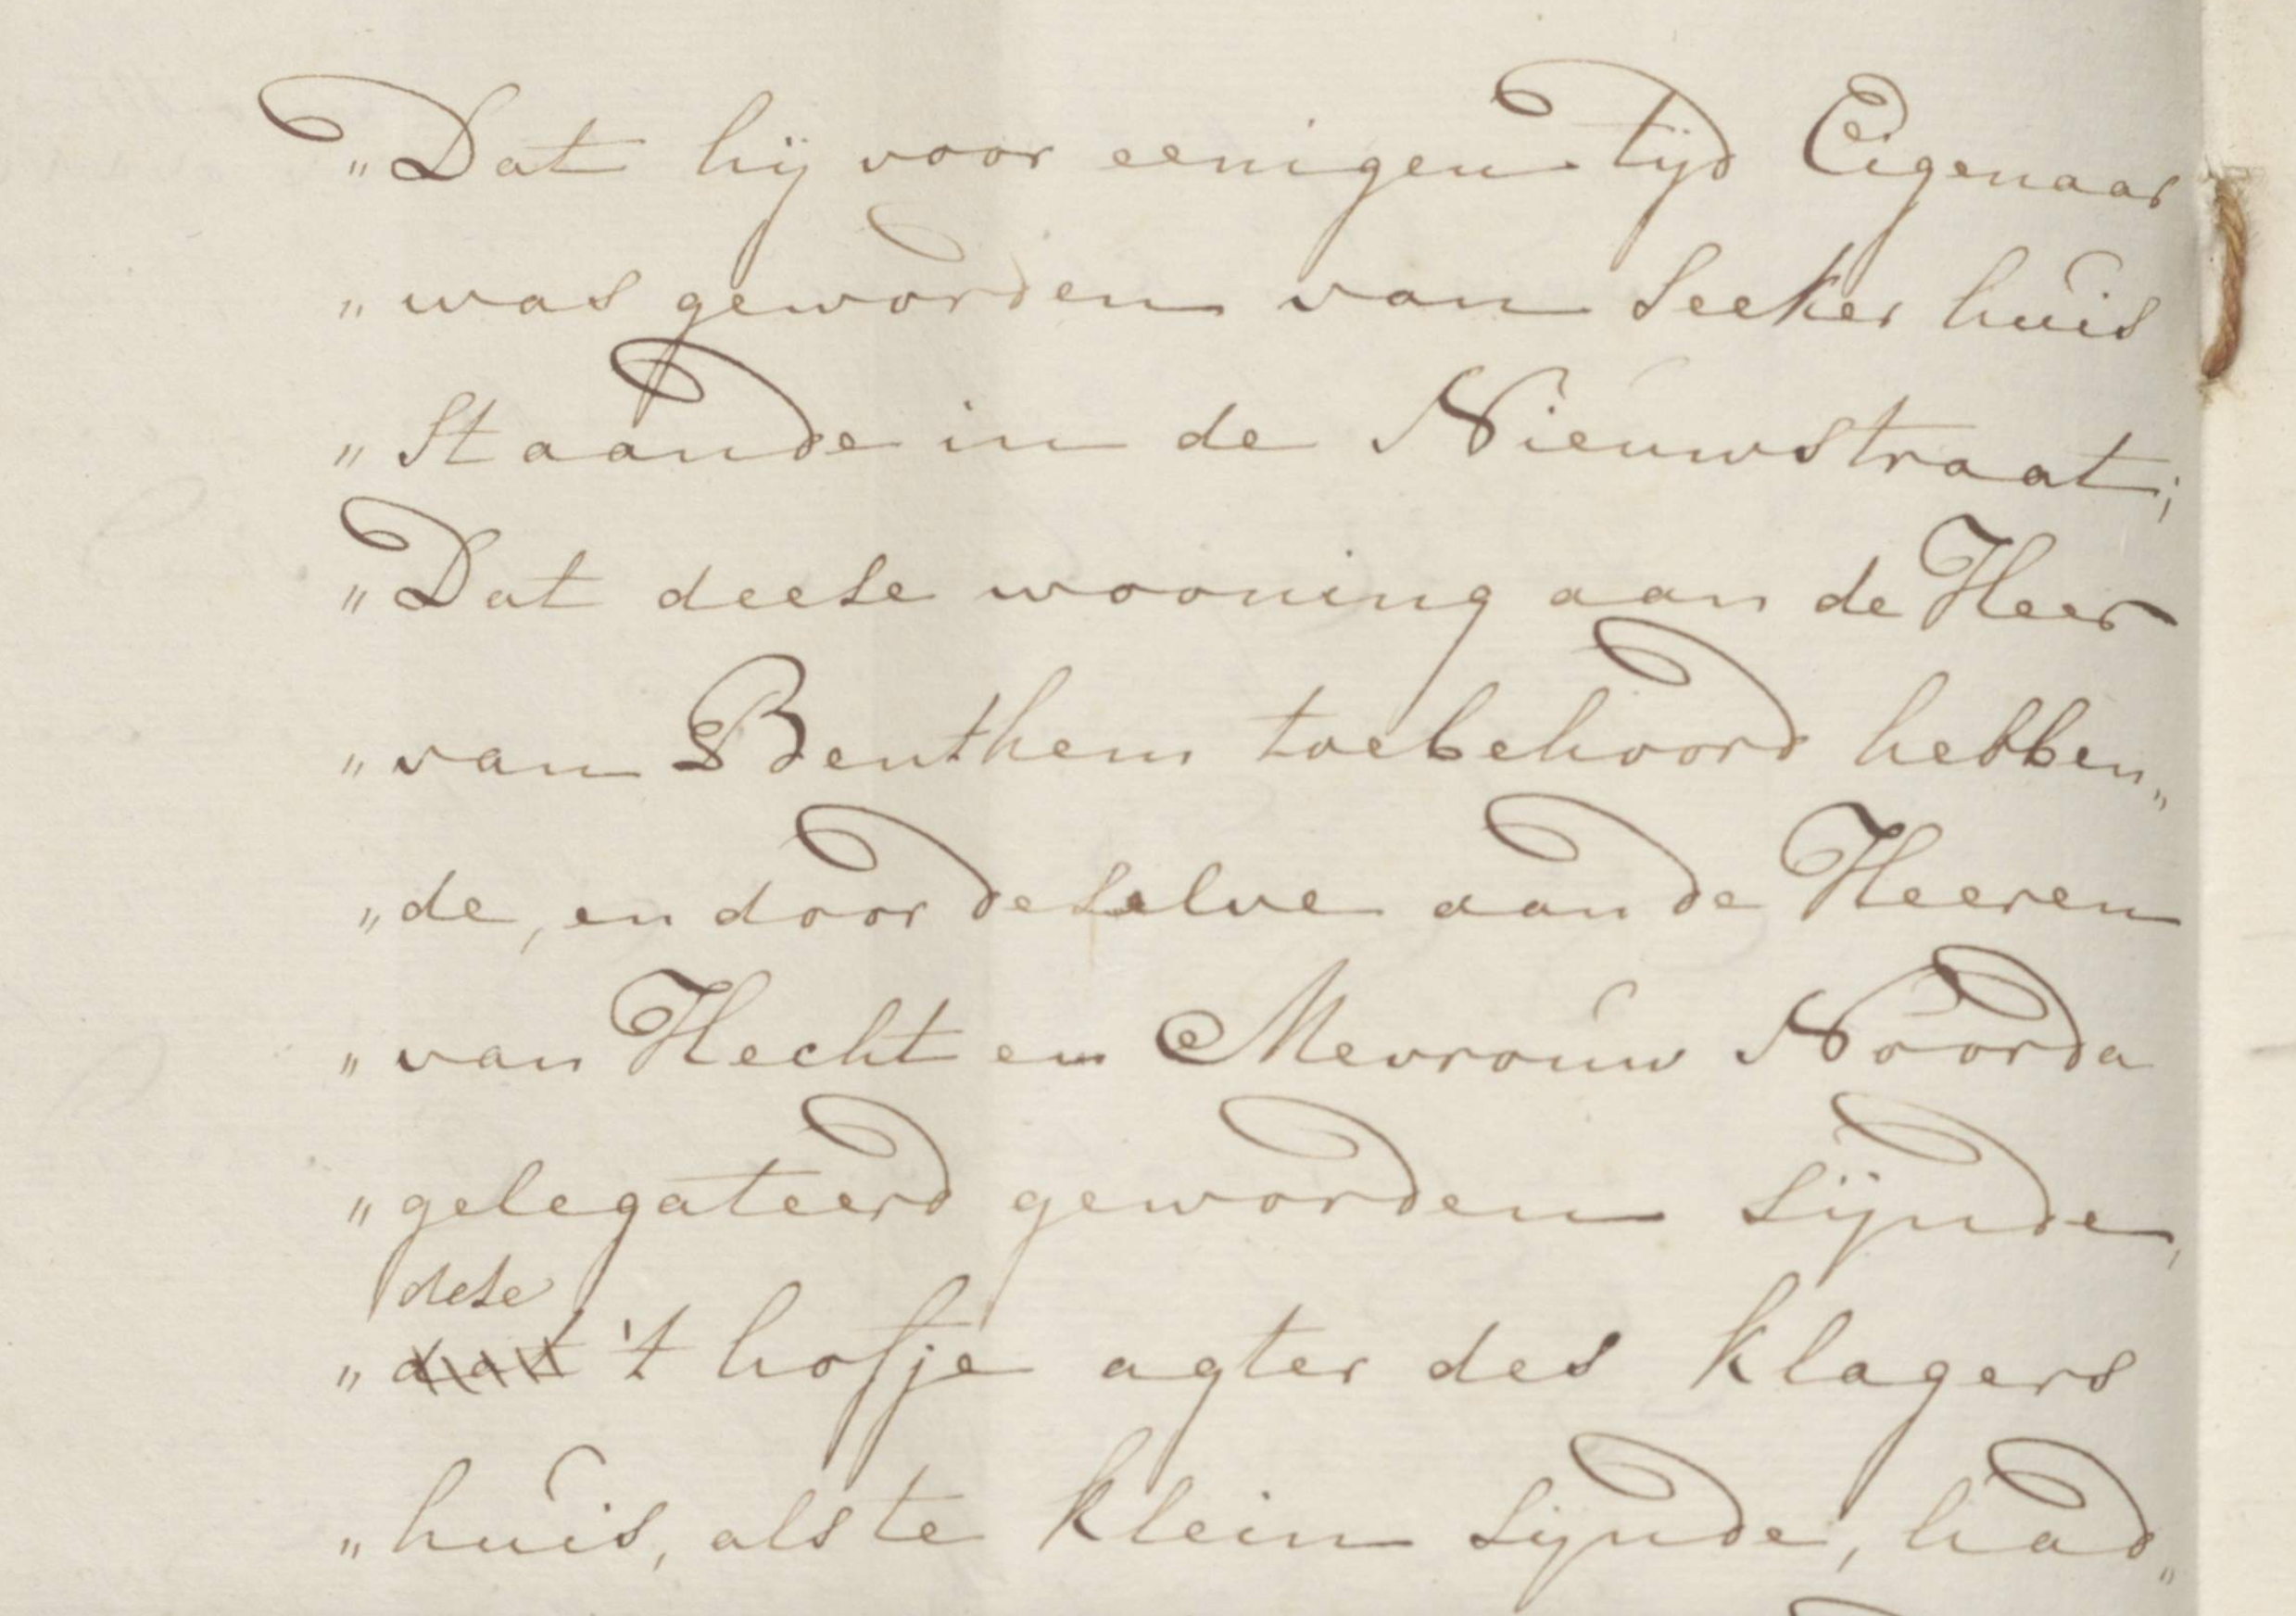 „Dat hij voor eenigen tijd Eigenaar
„was geworden van seeker huis
„staande in de Nieuwstraat;
„Dat deese wooning aan de Heer
„van Benthem toebehoord hebben„
„de, en door deselve aan de Heeren
„van Hecht en Mevrouw Noorda
„gelegateerd geworden sijnde,
dese
„dat 't hofje agter des klagers
„huis, als te klein sijnde, had„